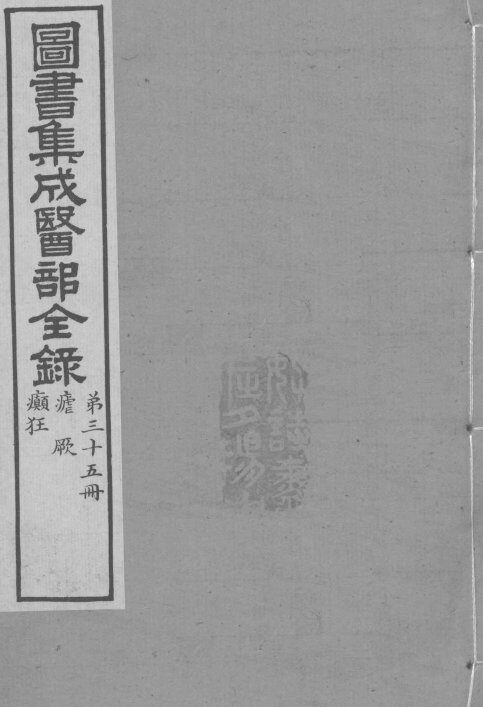 圖書集成醫部全錄
弟三十五冊
瘧厥
癲狂